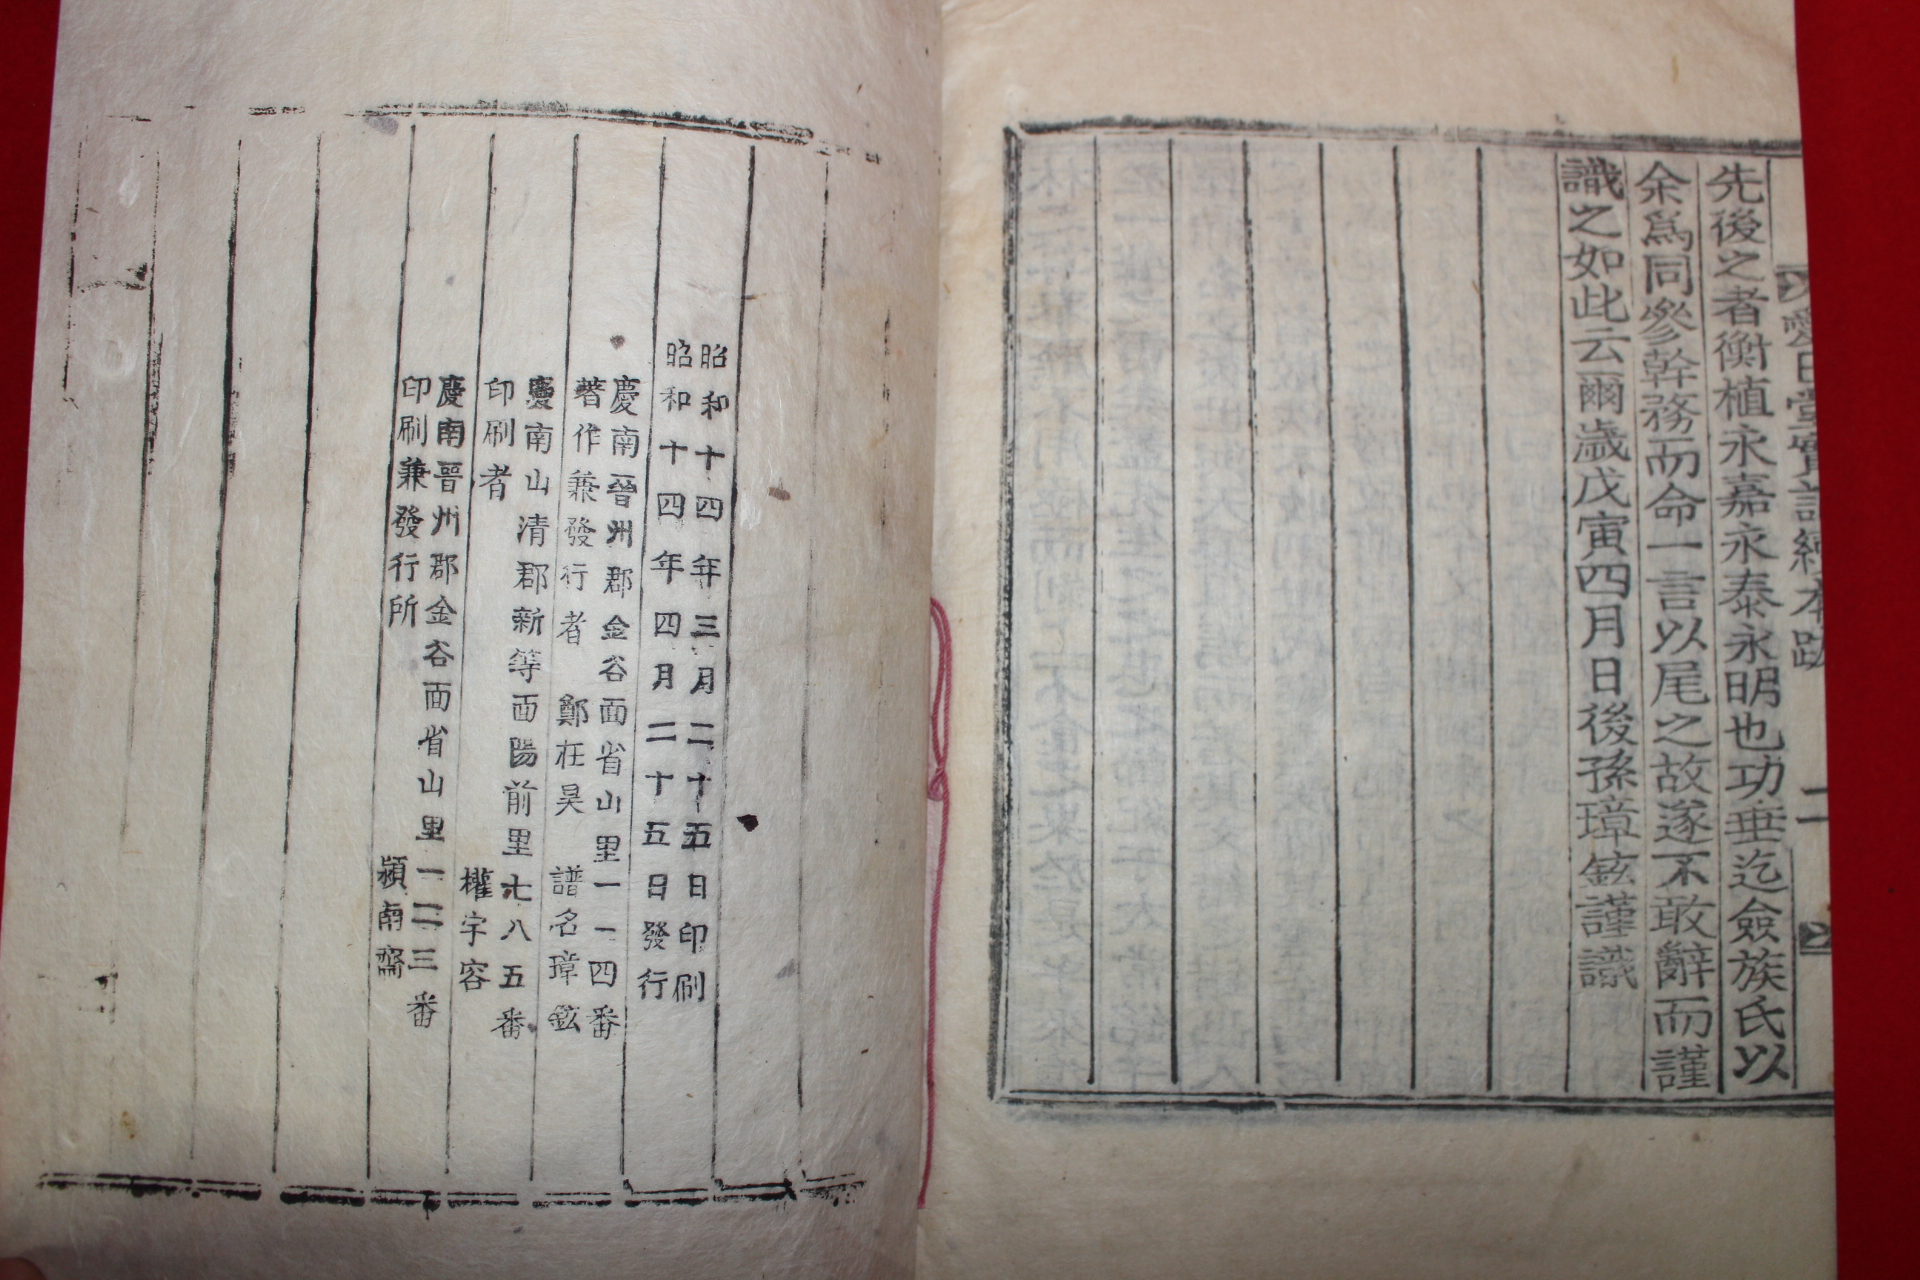 愛日堂實記續本跋
二
先後之者衡植永嘉永泰永明也功垂迄僉族氏以
余爲同參幹務而命一言以尾之故遂不敢辭而謹
識之如此云爾歲戊寅四月日後孫璋鉉謹識
昭和十四年三月二十五日印刷
昭和十四年四月二十五日發行
慶南晉州郡金谷面省山里一一四番
著作兼發行者 鄭在昊 譜名璋鉉
慶南山清郡新等面陽前里七八五番
印刷者 權宇容
慶南晉州郡金谷面省山里一二三番
印刷兼發行所 潁南齋